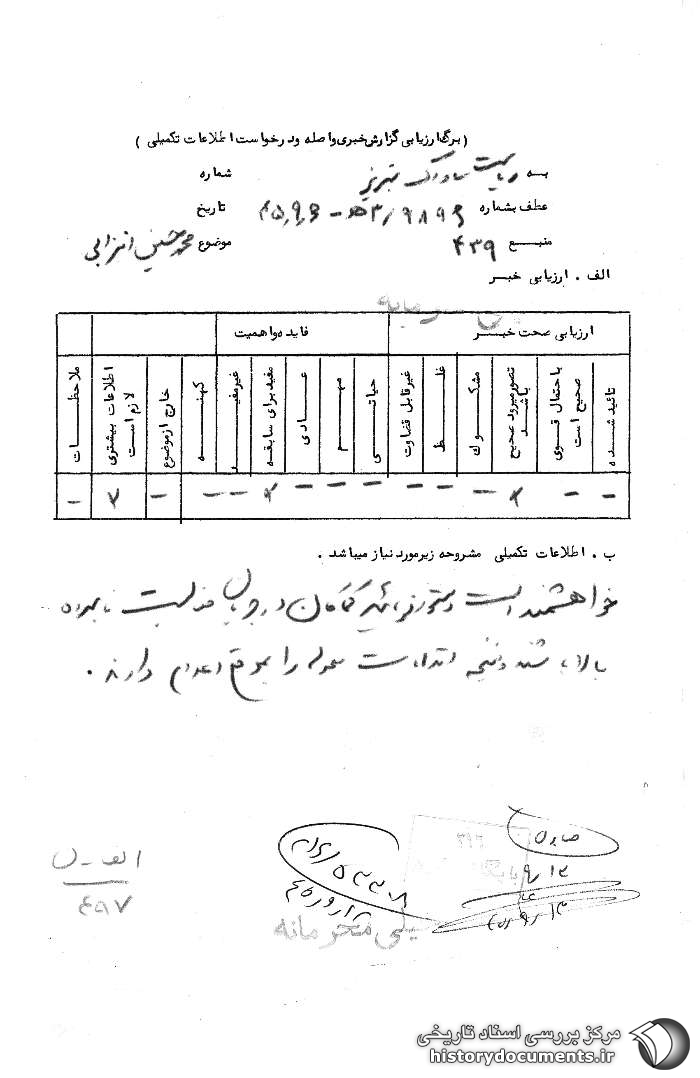 ( برگ ارزیابی گزارش خبری واصله و درخواست اطلاعات تکمیلی )
به ریاست ساواک تبریز شماره
عطف بشماره ۹۸۹۶/ه۳ - ۴۵٫۹٫۶ تاریخ
منبع ۴۳۹ موضوع محمد حسین انزابی
الف . ارزیابی خبر
ارزیابی صحت خبر فایده و اهمیت
تائید شده با احتمال قوی صحیح است تصور میرود صحیح باشد مشکوک غلط غیر قابل قضاوت حیاتی مهم عادی مفید برای سابقه غیر مفید کهنه خارج از موضوع اطلاعات بیشتری لازم است ملاحظات
ب . اطلاعات تکمیلی مشروحه زیر مورد نیاز میباشد .
خواهشمند است دستور فرمائید کماکان در جریان فعالیت نامبرده
بالا باشند و نتیجه اقدامات معموله را بموقع اعلام دارند .
۳۱۶/۵۳۳۰۸
۹/۱۲
الف - ل
۴۹۷
خیلی محرمانه
مرکز بررسی اسناد تاریخی
historydocuments.ir